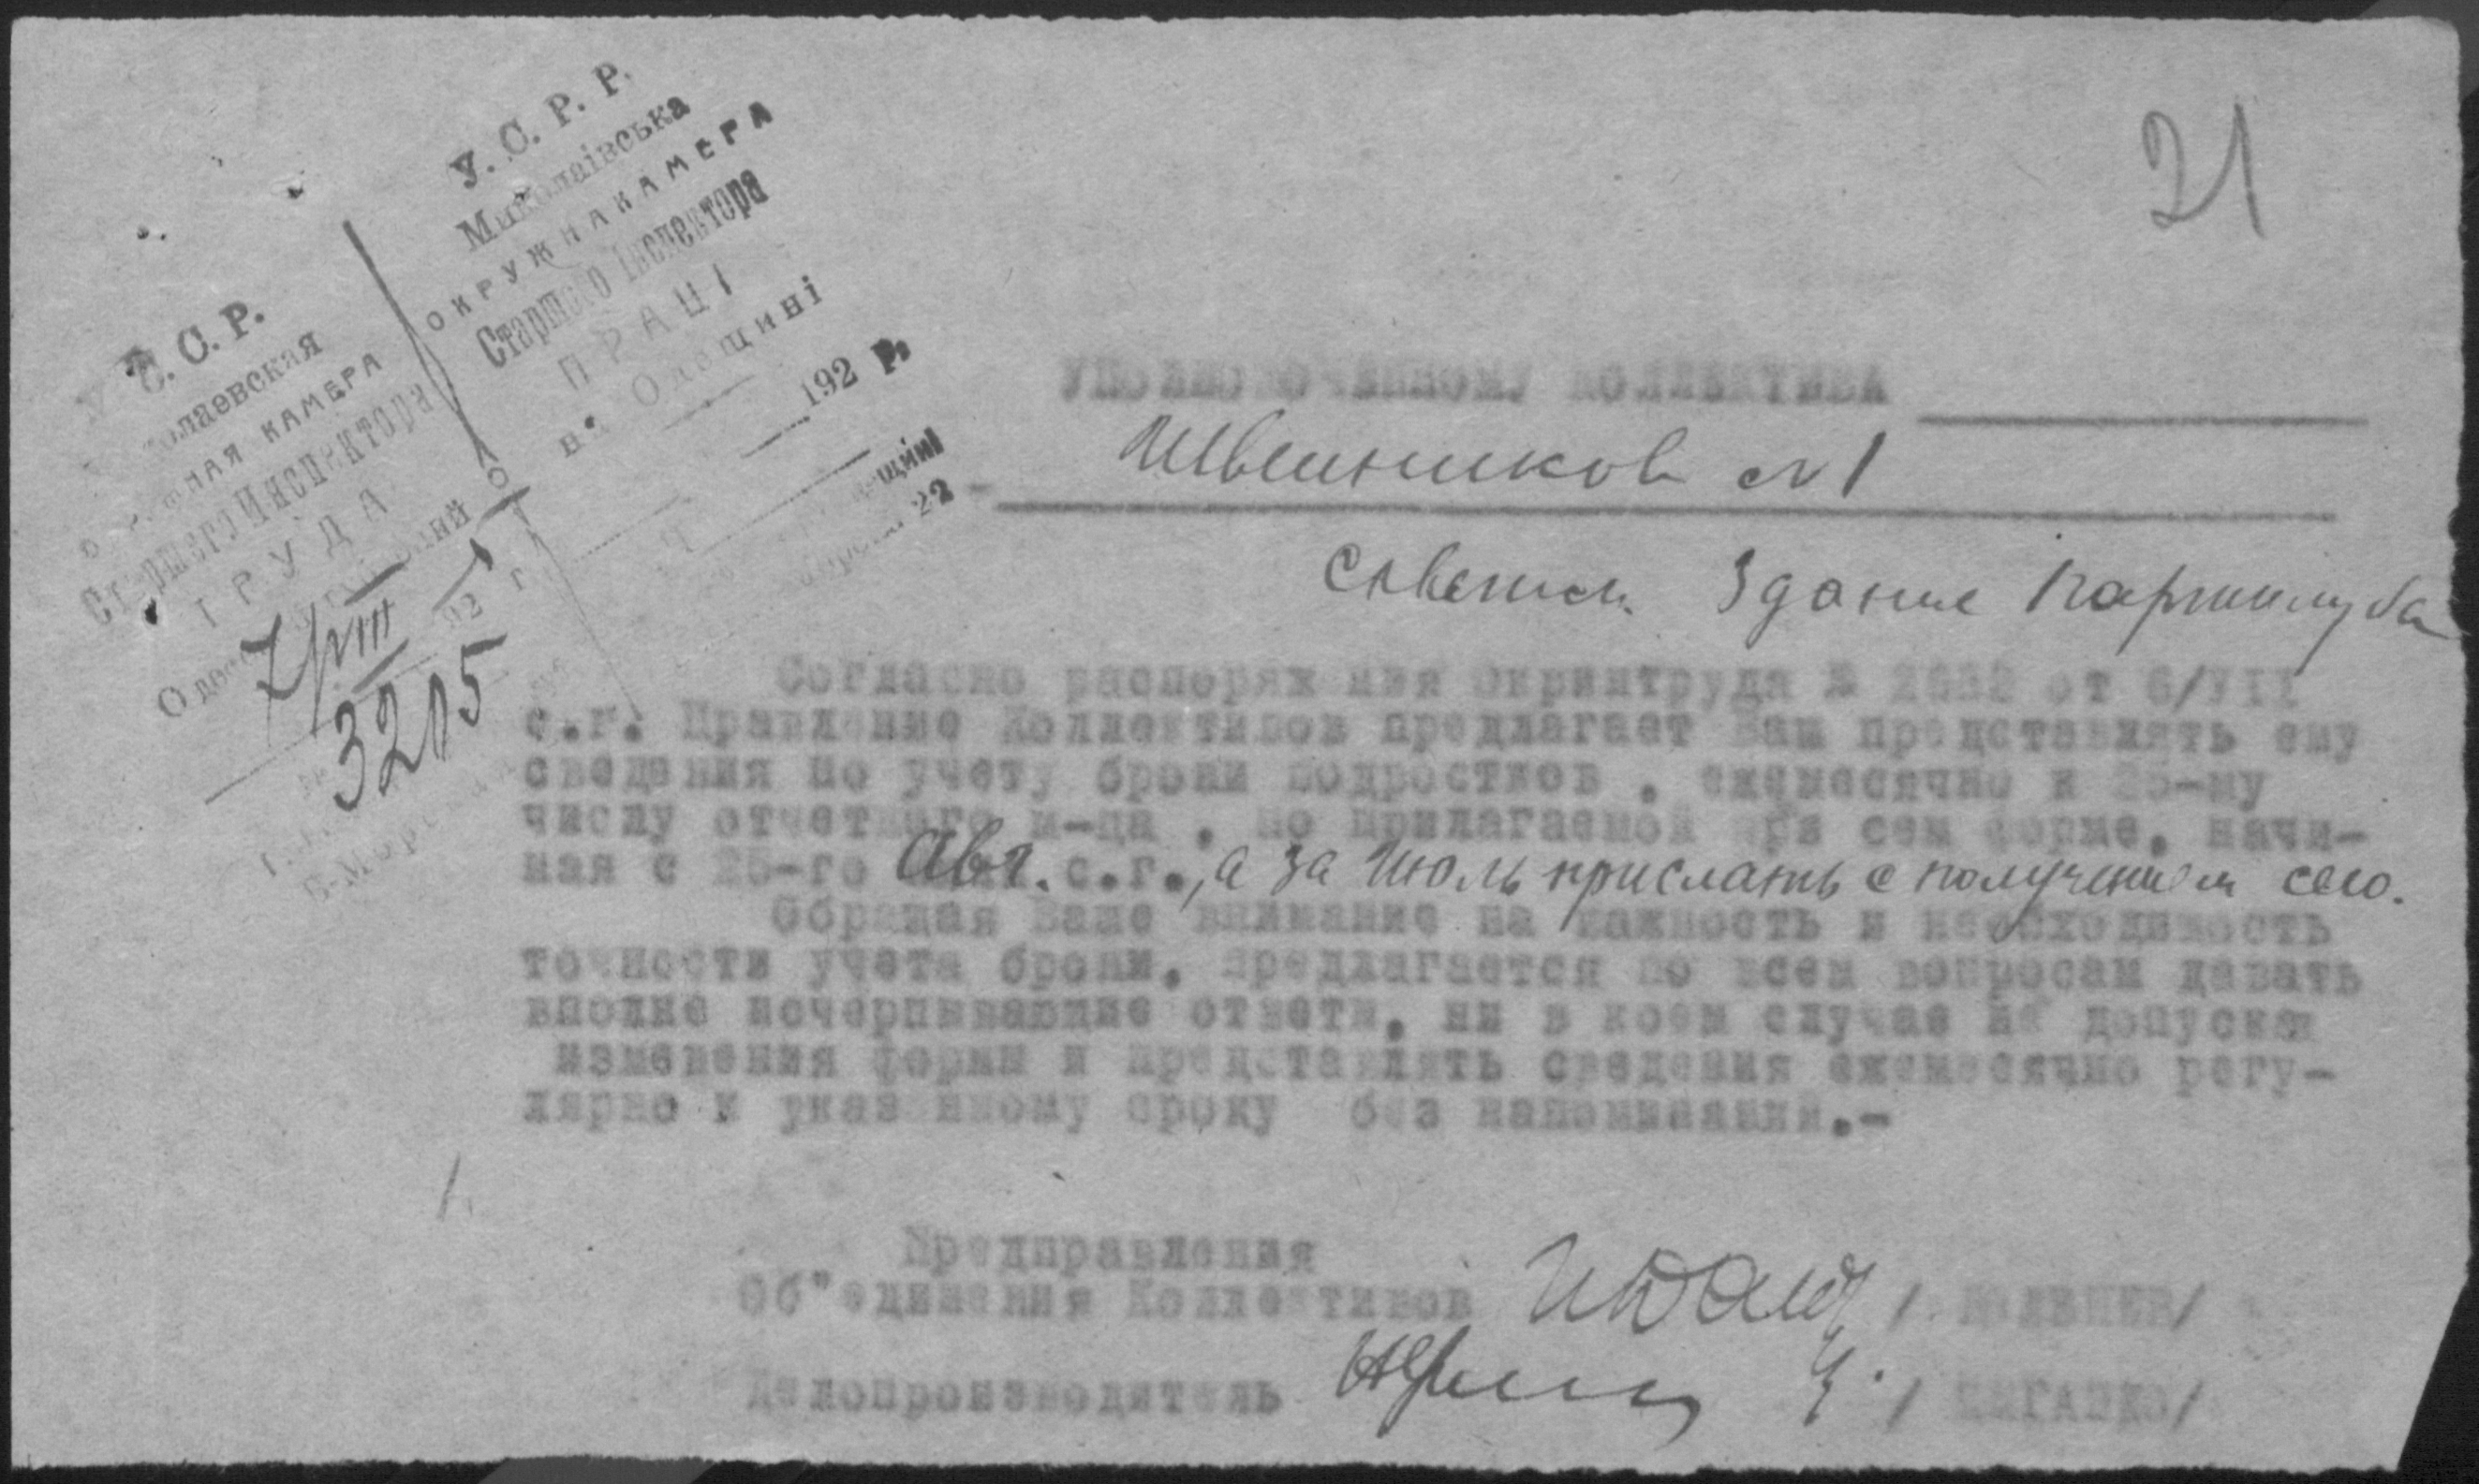 21
У. С. Р. Р.
Миколаівська
ОКРУЖНА КАМЕРА
Старшого Інспектора
ПРАЦІ
на Одещині
192 р.
22
С. С. Р.
олаевская
КАМЕРА
Старшего Инспектора
ТРУДА
7/VIII
3205
УПОЛНОМОЧЕННОМУ КОЛЛЕКТИВА
Швейников №1
Здание
Согласно распоряжения Окринтруда № 2632 от 6/УІІ
с.г. Правление Коллективов предлагает Вам представлять ему
сведения по учету брони подростков , ежемесячно к 25-му
числу отчетного м-ца , по прилагаемой при сем форме, начи-
ная с 25-го Авг. с.г., а за Июль прислать с получением сего.
Обращая Ваше внимание на важность и необходимость
точности учета брони, предлагается по всем вопросам давать
вполне исчерпывающие ответы, ни в коем случае не допуская
изменения формы и представлять сведения ежемесячно регу-
лярно к указанному сроку без напоминаний.-
Предправления
Об"единения Коллективов
Делопроизводитель / ЦЫГАНКО/